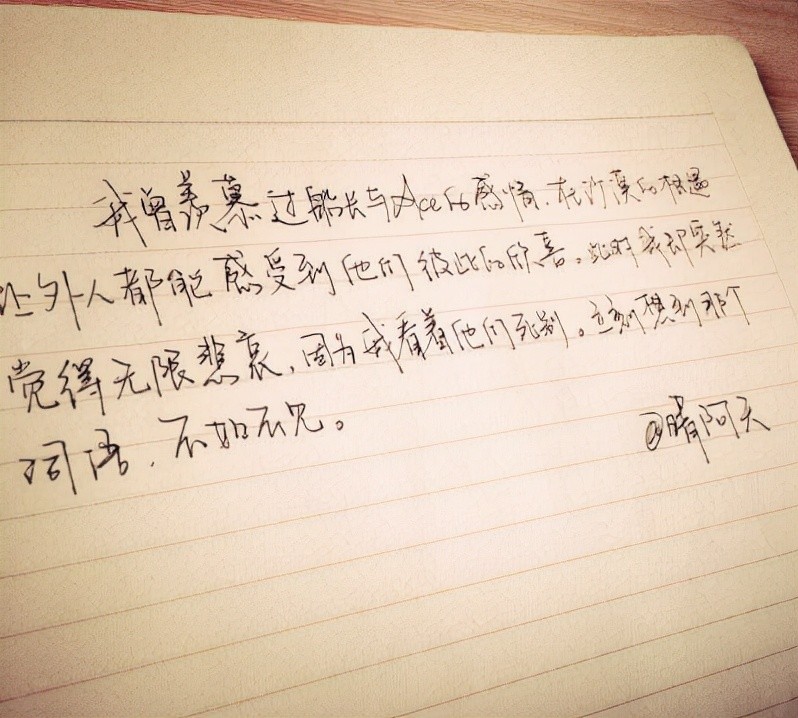 我曾羡慕过船长与Ace的感情,在沙漠的相遇
让外人都能感受到他们彼此的欣喜。此时我却突然
觉得无限悲哀,因为我看着他们死别。立刻想到那个
词语,不如不见。
@晴阿天